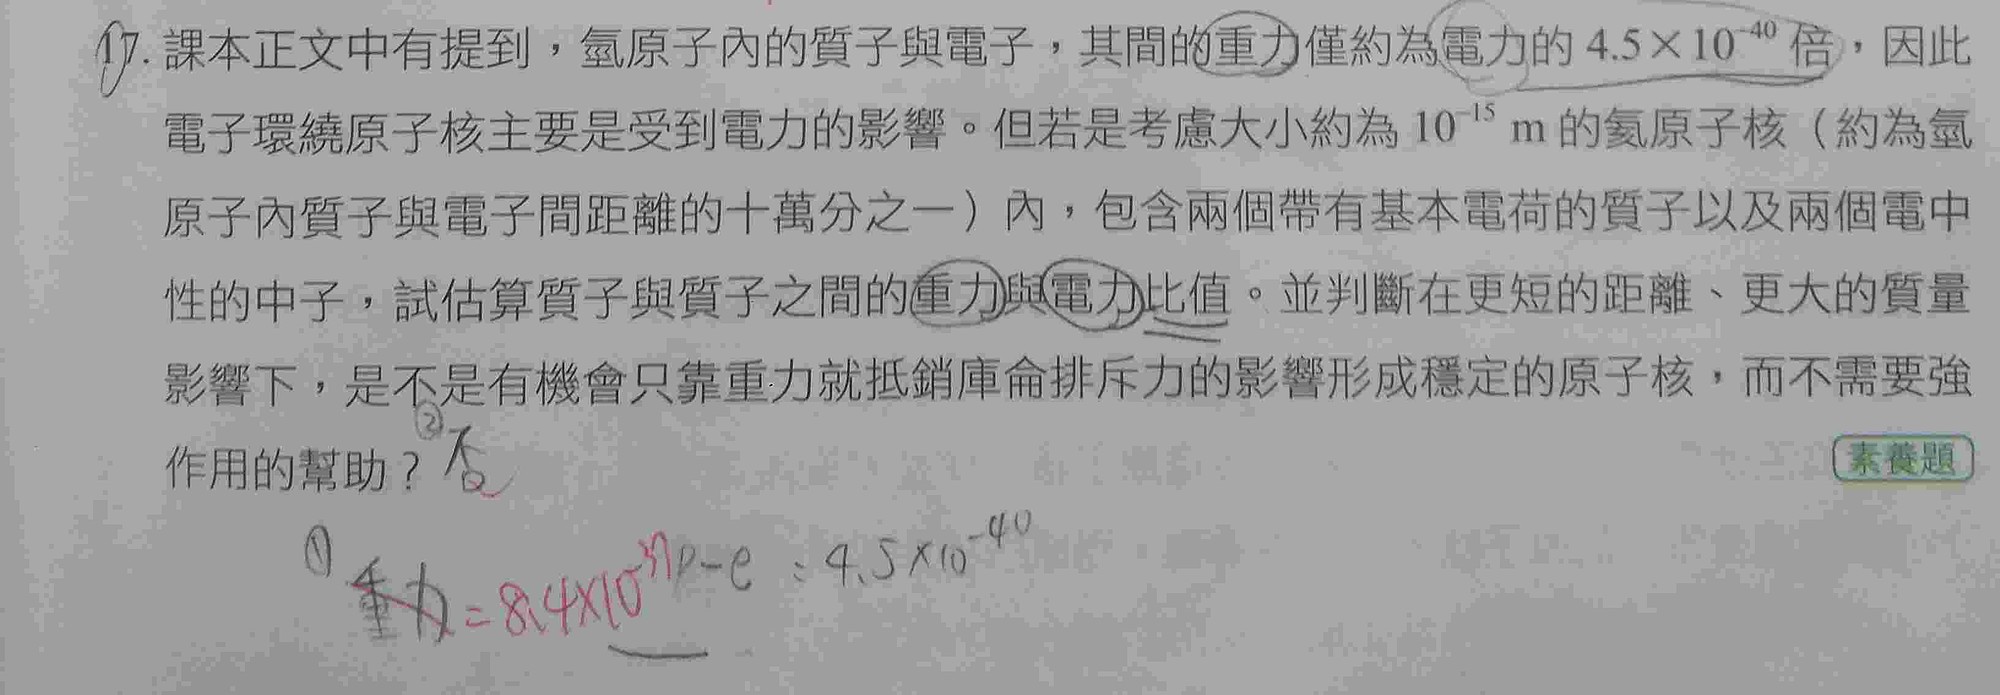 17. 課本正文中有提到，氫原子內的質子與電子，其間的重力僅約為電力的 4.5×10⁻⁴⁰ 倍，因此
電子環繞原子核主要是受到電力的影響。但若是考慮大小約為 10⁻¹⁵ m 的氦原子核（約為氫
原子內質子與電子間距離的十萬分之一）內，包含兩個帶有基本電荷的質子以及兩個電中
性的中子，試估算質子與質子之間的重力與電力比值。並判斷在更短的距離、更大的質量
影響下，是不是有機會只靠重力就抵銷庫侖排斥力的影響形成穩定的原子核，而不需要強
作用的幫助？ ② 否
素養題
① 重力 = 8.4×10⁻³⁷ p-e : 4.5×10⁻⁴⁰